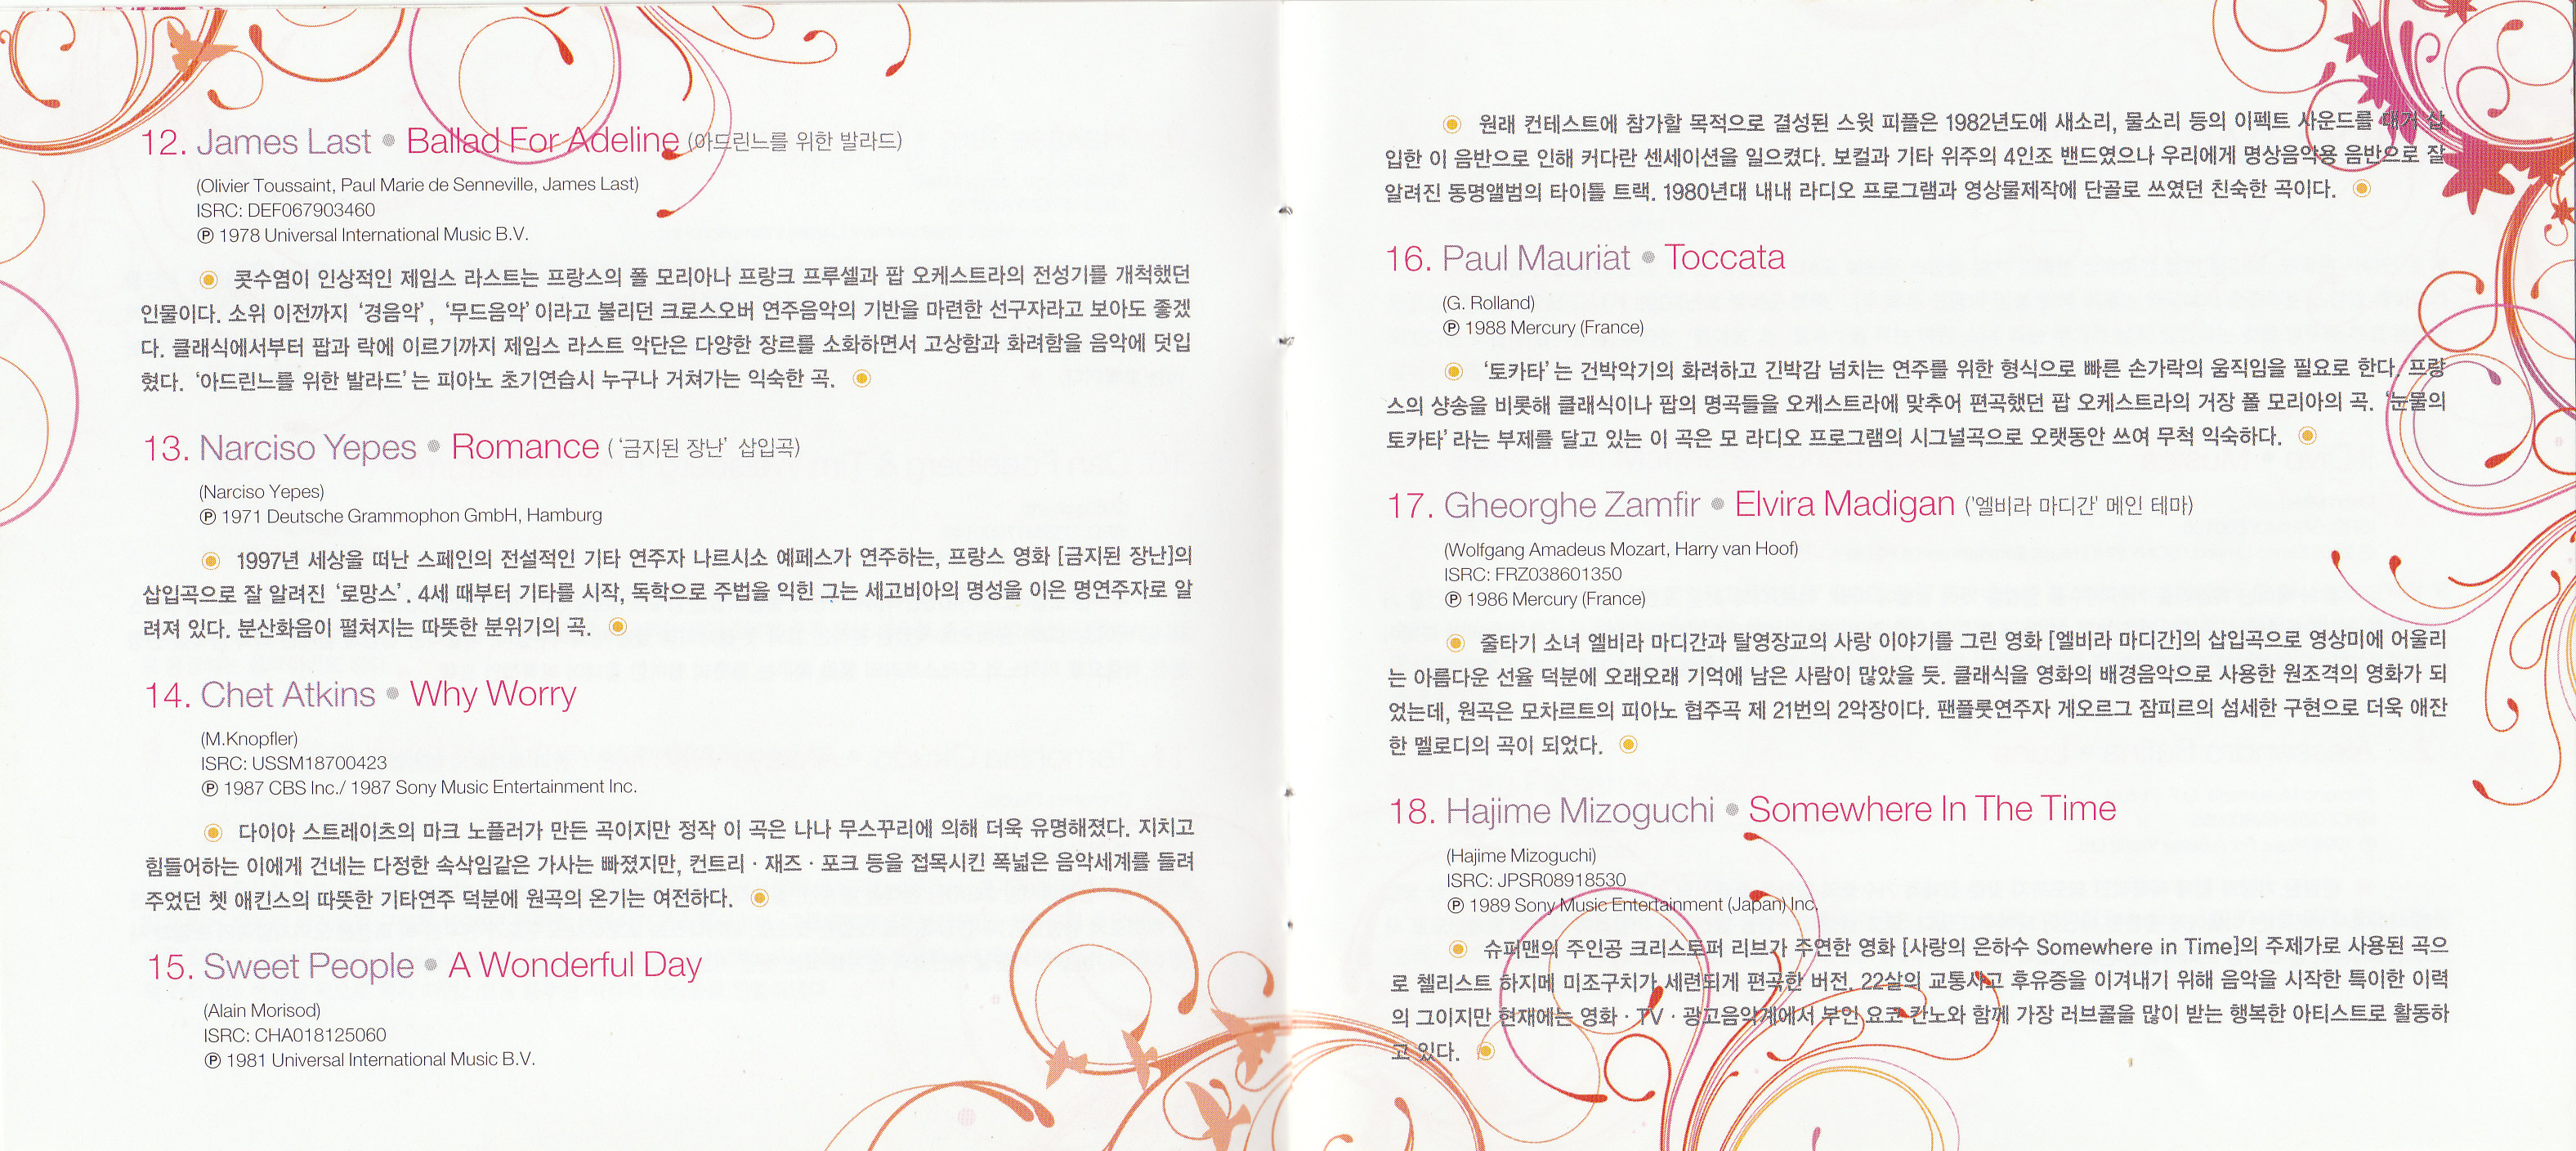 12. James Last ● Ballad For Adeline (아드린느를 위한 발라드)
(Olivier Toussaint, Paul Marie de Senneville, James Last)
ISRC: DEF067903460
℗ 1978 Universal International Music B.V.
콧수염이 인상적인 제임스 라스트는 프랑스의 폴 모리아나 프랑크 프루셀과 팝 오케스트라의 전성기를 개척했던
인물이다. 소위 이전까지 ‘경음악’, ‘무드음악’이라고 불리던 크로스오버 연주음악의 기반을 마련한 선구자라고 보아도 좋겠
다. 클래식에서부터 팝과 락에 이르기까지 제임스 라스트 악단은 다양한 장르를 소화하면서 고상함과 화려함을 음악에 덧입
혔다. ‘아드린느를 위한 발라드’는 피아노 초기연습시 누구나 거쳐가는 익숙한 곡.
13. Narciso Yepes ● Romance (‘금지된 장난’ 삽입곡)
(Narciso Yepes)
℗ 1971 Deutsche Grammophon GmbH, Hamburg
1997년 세상을 떠난 스페인의 전설적인 기타 연주자 나르시소 예페스가 연주하는, 프랑스 영화 [금지된 장난]의
삽입곡으로 잘 알려진 ‘로망스’. 4세 때부터 기타를 시작, 독학으로 주법을 익힌 그는 세고비아의 명성을 이은 명연주자로 알
려져 있다. 분산화음이 펼쳐지는 따뜻한 분위기의 곡.
14. Chet Atkins ● Why Worry
(M.Knopfler)
ISRC: USSM18700423
℗ 1987 CBS Inc./ 1987 Sony Music Entertainment Inc.
다이아 스트레이츠의 마크 노플러가 만든 곡이지만 정작 이 곡은 나나 무스꾸리에 의해 더욱 유명해졌다. 지치고
힘들어하는 이에게 건네는 다정한 속삭임같은 가사는 빠졌지만, 컨트리 · 재즈 · 포크 등을 접목시킨 폭넓은 음악세계를 들려
주었던 쳇 애킨스의 따뜻한 기타연주 덕분에 원곡의 온기는 여전하다.
15. Sweet People ● A Wonderful Day
(Alain Morisod)
ISRC: CHA018125060
℗ 1981 Universal International Music B.V.
원래 컨테스트에 참가할 목적으로 결성된 스윗 피플은 1982년도에 새소리, 물소리 등의 이펙트 사운드를 대거 삽
입한 이 음반으로 인해 커다란 센세이션을 일으켰다. 보컬과 기타 위주의 4인조 밴드였으나 우리에게 명상음악용 음반으로 잘
알려진 동명앨범의 타이틀 트랙. 1980년대 내내 라디오 프로그램과 영상물제작에 단골로 쓰였던 친숙한 곡이다.
16. Paul Mauriat ● Toccata
(G. Rolland)
℗ 1988 Mercury (France)
‘토카타’는 건박악기의 화려하고 긴박감 넘치는 연주를 위한 형식으로 빠른 손가락의 움직임을 필요로 한다. 프랑
스의 샹송을 비롯해 클래식이나 팝의 명곡들을 오케스트라에 맞추어 편곡했던 팝 오케스트라의 거장 폴 모리아의 곡. ‘눈물의
토카타’라는 부제를 달고 있는 이 곡은 모 라디오 프로그램의 시그널곡으로 오랫동안 쓰여 무척 익숙하다.
17. Gheorghe Zamfir ● Elvira Madigan (‘엘비라 마디간’ 메인 테마)
(Wolfgang Amadeus Mozart, Harry van Hoof)
ISRC: FRZ038601350
℗ 1986 Mercury (France)
줄타기 소녀 엘비라 마디간과 탈영장교의 사랑 이야기를 그린 영화 [엘비라 마디간]의 삽입곡으로 영상미에 어울리
는 아름다운 선율 덕분에 오래오래 기억에 남은 사람이 많았을 듯. 클래식을 영화의 배경음악으로 사용한 원조격의 영화가 되
었는데, 원곡은 모차르트의 피아노 협주곡 제 21번의 2악장이다. 팬플룻연주자 게오르그 잠피르의 섬세한 구현으로 더욱 애잔
한 멜로디의 곡이 되었다.
18. Hajime Mizoguchi ● Somewhere In The Time
(Hajime Mizoguchi)
ISRC: JPSR08918530
℗ 1989 Sony Music Entertainment (Japan) Inc.
슈퍼맨의 주인공 크리스토퍼 리브가 주연한 영화 [사랑의 은하수 Somewhere in Time]의 주제가로 사용된 곡으
로 첼리스트 하지메 미조구치가 세련되게 편곡한 버전. 22살의 교통사고 후유증을 이겨내기 위해 음악을 시작한 특이한 이력
의 그이지만 현재에는 영화 · TV · 광고음악계에서 부인 요코 칸노와 함께 가장 러브콜을 많이 받는 행복한 아티스트로 활동하
고 있다.